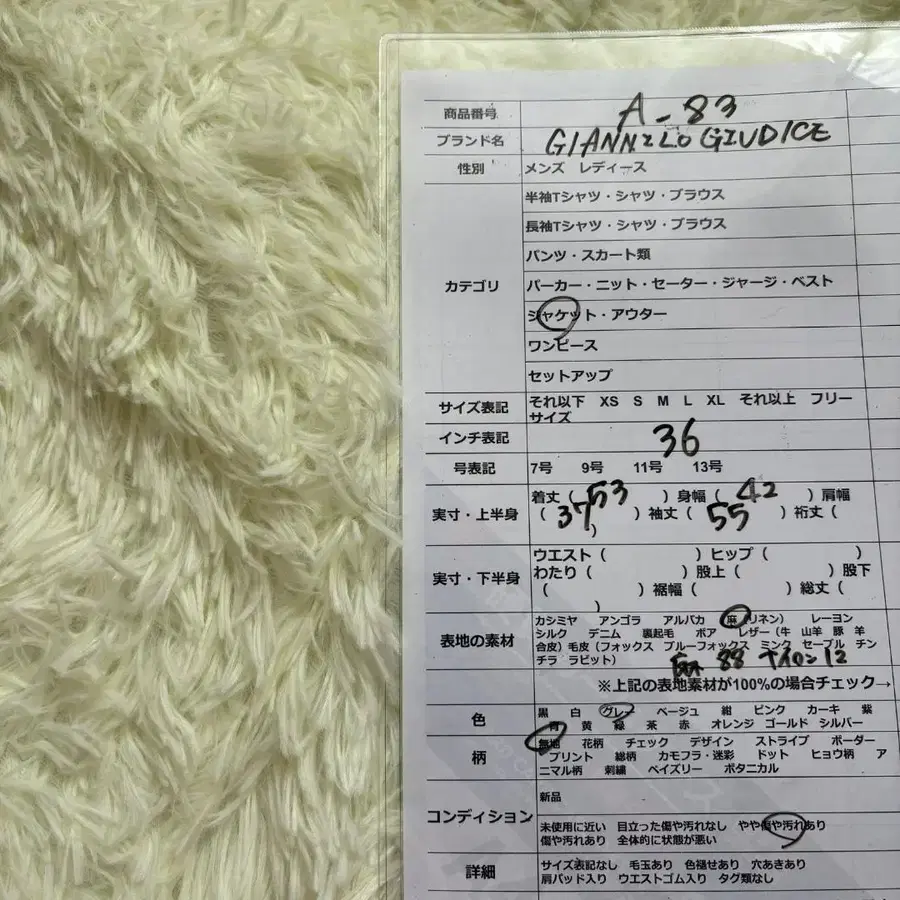 商品番号 A-83
ブランド名 GIANNI LO GIUDICE
性別 メンズ レディース
カテゴリ
半袖Tシャツ・シャツ・ブラウス
長袖Tシャツ・シャツ・ブラウス
パンツ・スカート類
パーカー・ニット・セーター・ジャージ・ベスト
ジャケット・アウター
ワンピース
セットアップ
サイズ表記 それ以下 XS S M L XL それ以上 フリー
サイズ
インチ表記 36
号表記 7号 9号 11号 13号
実寸・上半身
着丈(53)身幅(42)肩幅
(37)袖丈(55)裄丈(
)
実寸・下半身
ウエスト( )ヒップ( )
わたり( )股上( )股下
( )裾幅( )総丈(
)
表地の素材
カシミヤ アンゴラ アルパカ 麻(リネン) レーヨン
シルク デニム 裏起毛 ボア レザー(牛 山羊 豚 羊
合皮)毛皮(フォックス ブルーフォックス ミンク セーブル チン
チラ ラビット)
麻 88 ナイロン 12
※上記の表地素材が100%の場合チェック→
色
黒 白 グレー ベージュ 紺 ピンク カーキ 紫
青 黄 緑 茶 赤 オレンジ ゴールド シルバー
柄
無地 花柄 チェック デザイン ストライプ ボーダー
プリント 総柄 カモフラ・迷彩 ドット ヒョウ柄 ア
ニマル柄 刺繍 ペイズリー ボタニカル
コンディション
新品
未使用に近い 目立った傷や汚れなし やや傷や汚れあり
傷や汚れあり 全体的に状態が悪い
詳細
サイズ表記なし 毛玉あり 色褪せあり 穴あきあり
肩パッド入り ウエストゴム入り タグ類なし